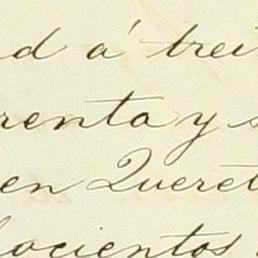 d á trei
renta y s
en Queret
hocientos